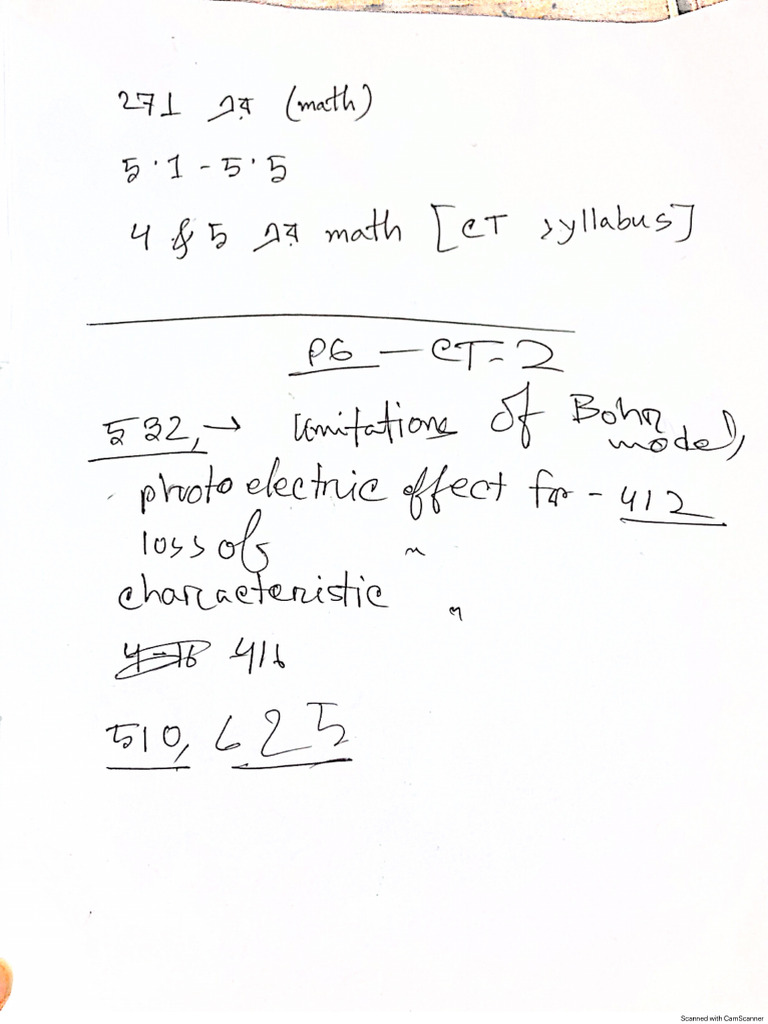 271 এর (math)
5.1 - 5.5
4 & 5 এর math [CT syllabus]
P6 - CT-2
532, → Limitations of Bohr
model,
photo electric effect for - 412
loss of "
characteristic "
416
510, 625
Scanned with CamScanner